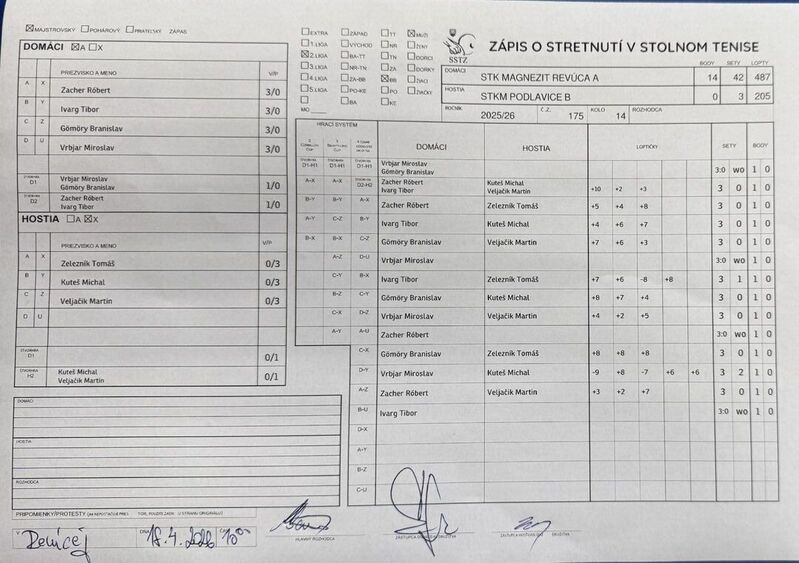 ☒ MAJSTROVSKÝ ☐ POHÁROVÝ ☐ PRIATEĽSKÝ ZÁPAS
DOMÁCI ☒A ☐X
PRIEZVISKO A MENO V/P
A X Zacher Róbert 3/0
B Y Ivarg Tibor 3/0
C Z Gömöry Branislav 3/0
D U Vrbjar Miroslav 3/0
ŠTVORHRA D1 Vrbjar Miroslav
Gömöry Branislav 1/0
ŠTVORHRA D2 Zacher Róbert
Ivarg Tibor 1/0
HOSTIA ☐A ☒X
PRIEZVISKO A MENO V/P
A X Zelezník Tomáš 0/3
B Y Kuteš Michal 0/3
C Z Veljačik Martin 0/3
D U
ŠTVORHRA D1 0/1
ŠTVORHRA H2 Kuteš Michal
Veljačik Martin 0/1
DOMÁCI
HOSTIA
ROZHODCA
PRIPOMIENKY/PROTESTY
V DŇA 18.4.2026 ČAS 10:00
HLAVNÝ ROZHODCA
☐ EXTRA ☐ ZÁPAD ☐ TT ☒ MUŽI
☐ 1.LIGA ☐ VÝCHOD ☐ NR ☐ ŽENY
☒ 2.LIGA ☐ BA-TT ☐ TN ☐ DORCI
☐ 3.LIGA ☐ NR-TN ☐ ZA ☐ DORKY
☐ 4.LIGA ☐ ZA-BB ☒ BB ☐ ŽIACI
☐ 5.LIGA ☐ PO-KE ☐ PO ☐ ŽIAČKY
☐ ☐ BA ☐ KE
MO
SSTZ
ZÁPIS O STRETNUTÍ V STOLNOM TENISE
BODY SETY LOPTY
DOMÁCI STK MAGNEZIT REVÚCA A 14 42 487
HOSTIA STKM PODLAVICE B 0 3 205
ROČNÍK 2025/26 Č.Z. 175 KOLO 14 ROZHODCA
HRACÍ SYSTÉM DOMÁCI HOSTIA LOPTIČKY SETY BODY
D1-H1 D1-H1 D1-H1 Vrbjar Miroslav
Gömöry Branislav 3:0 WO 1 0
A-X A-X D2-H2 Zacher Róbert Kuteš Michal
Ivarg Tibor Veljačik Martin +10 +2 +3 3 0 1 0
B-Y B-Y A-X Zacher Róbert Zelezník Tomáš +5 +4 +8 3 0 1 0
A-Y C-Z B-Y Ivarg Tibor Kuteš Michal +4 +6 +7 3 0 1 0
B-X B-X C-Z Gömöry Branislav Veljačik Martin +7 +6 +3 3 0 1 0
A-Z D-U Vrbjar Miroslav 3:0 WO 1 0
C-Y B-X Ivarg Tibor Zelezník Tomáš +7 +6 -8 +8 3 1 1 0
B-Z C-Y Gömöry Branislav Kuteš Michal +8 +7 +4 3 0 1 0
C-X D-Z Vrbjar Miroslav Veljačik Martin +4 +2 +5 3 0 1 0
A-Y A-U Zacher Róbert 3:0 WO 1 0
C-X Gömöry Branislav Zelezník Tomáš +8 +8 +8 3 0 1 0
D-Y Vrbjar Miroslav Kuteš Michal -9 +8 -7 +6 +6 3 2 1 0
A-Z Zacher Róbert Veljačik Martin +3 +2 +7 3 0 1 0
B-U Ivarg Tibor 3:0 WO 1 0
D-X
A-Y
B-Z
C-U